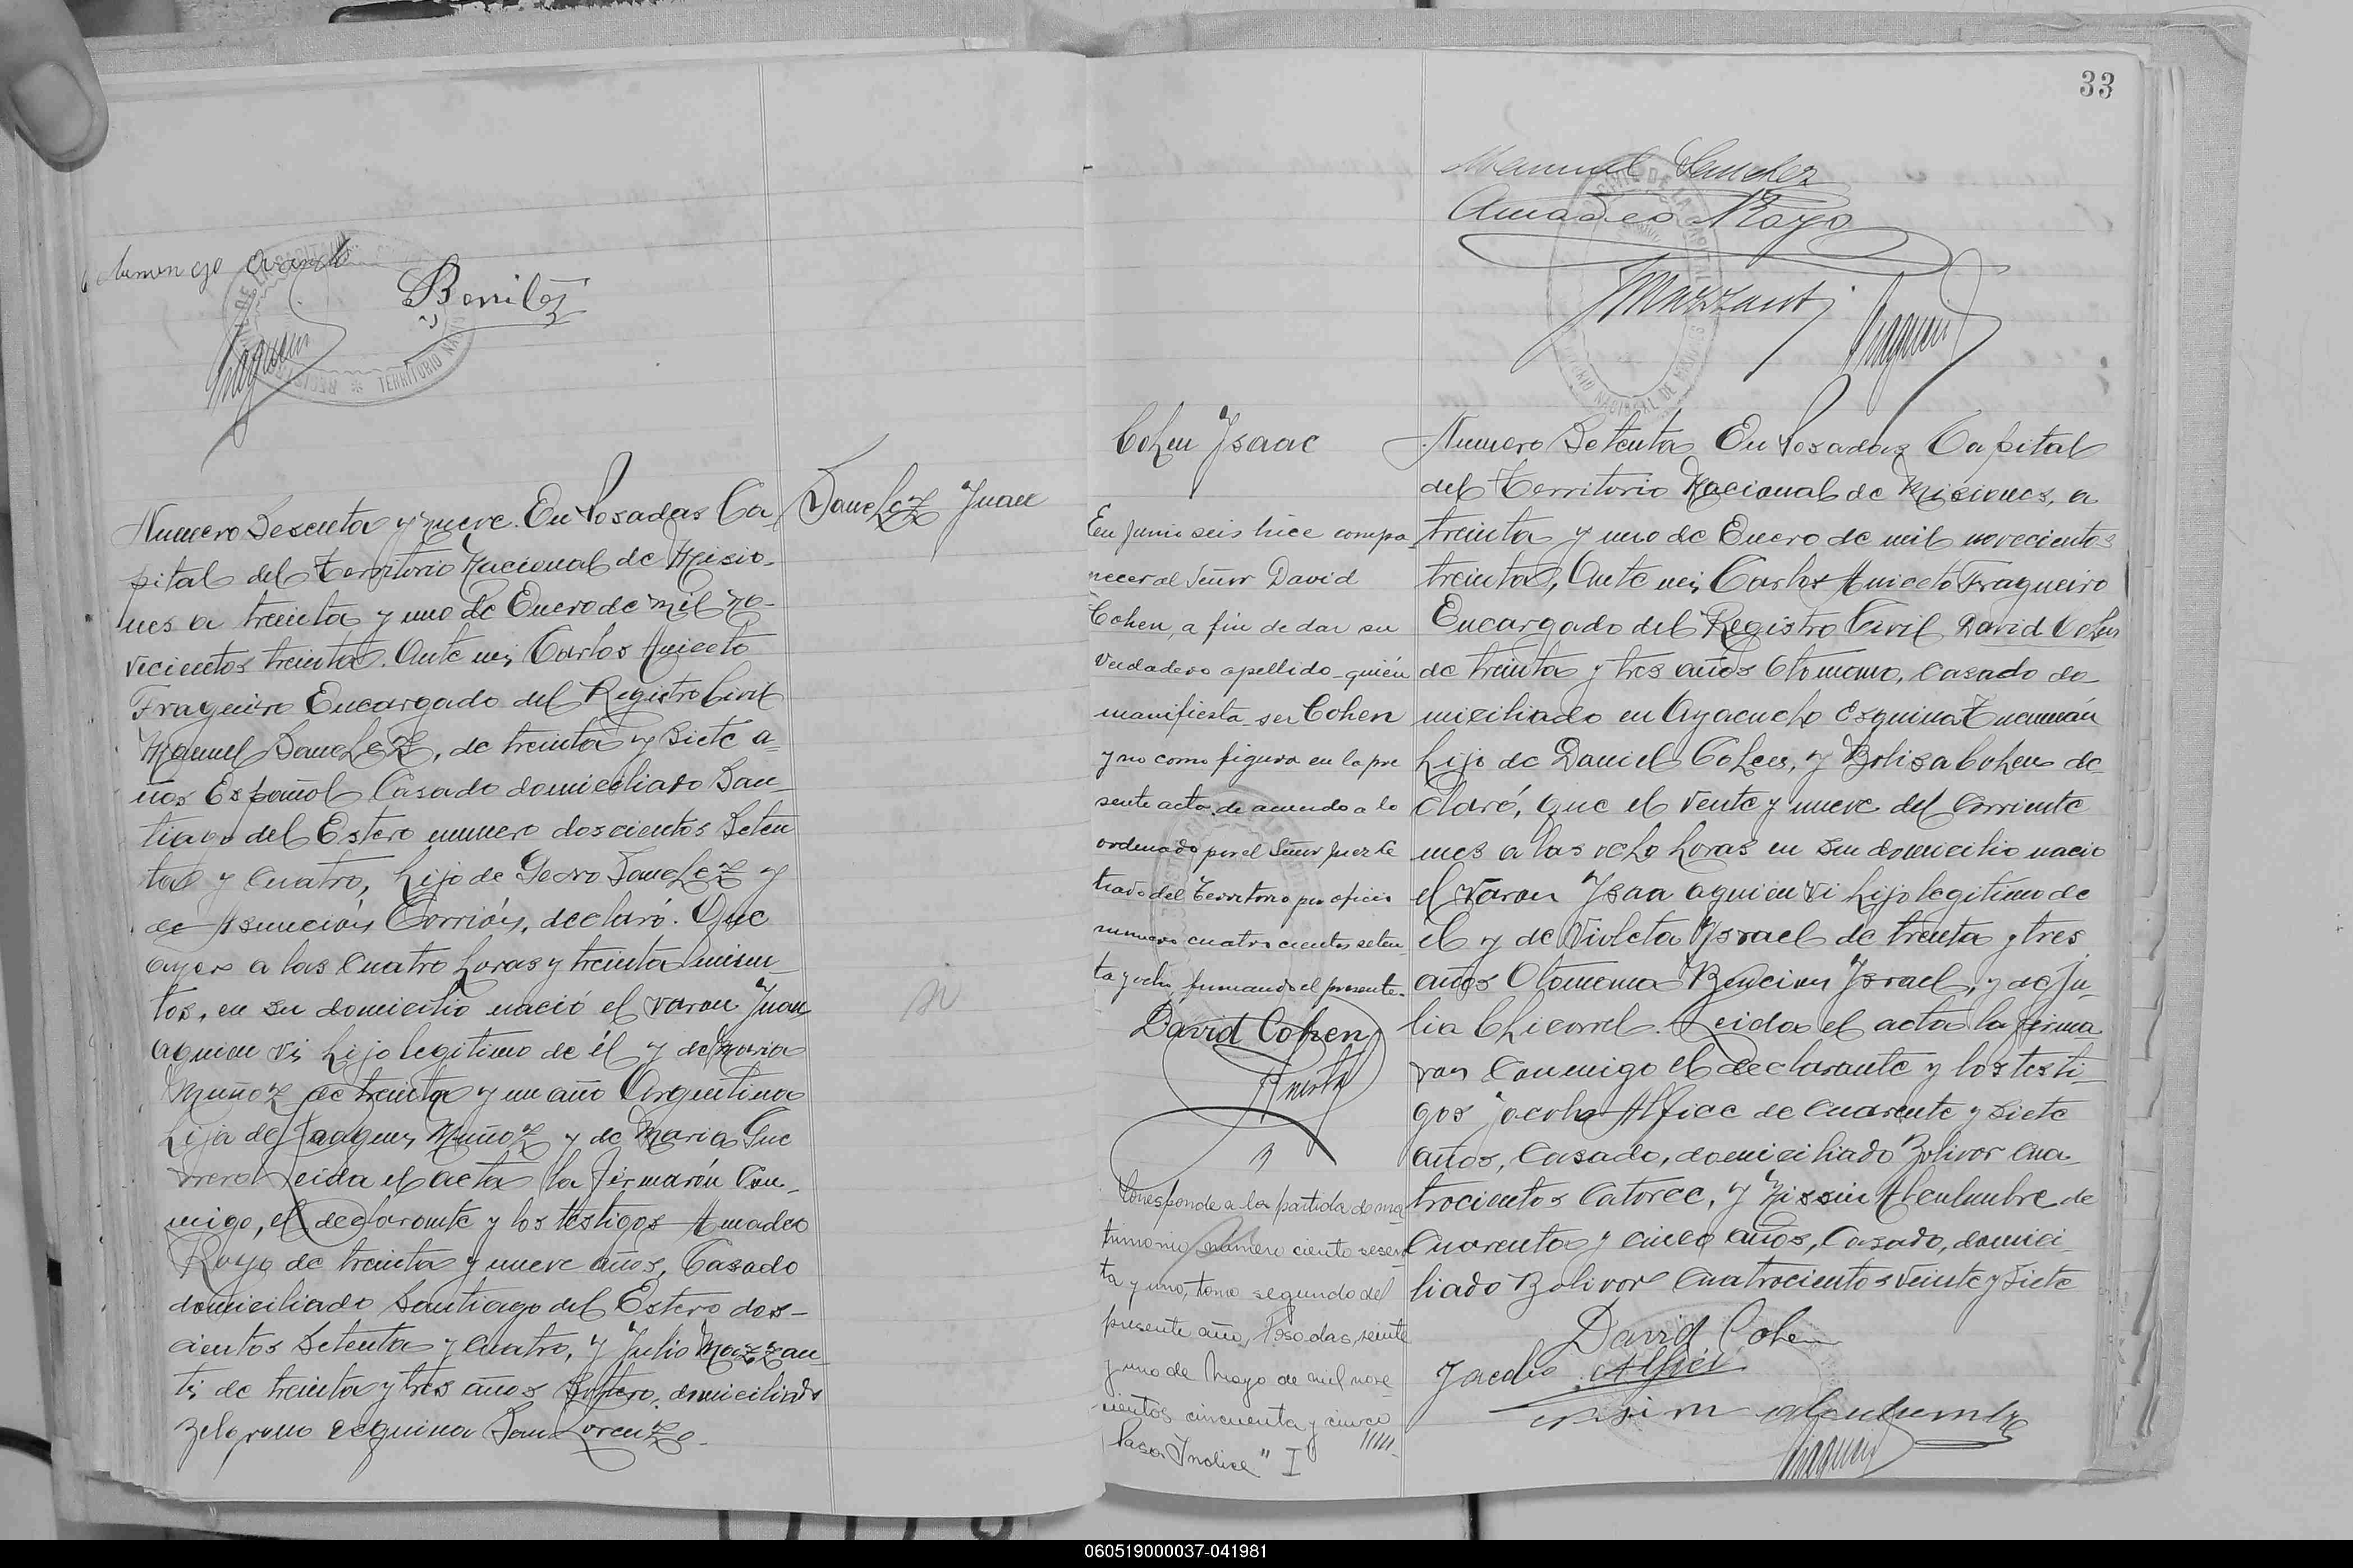 Benitez
Numero Sesenta y nueve. En Posadas Ca
Sanchez Juan
pital del Territorio Nacional de Misio-
nes a treinta y uno de Enero de mil no-
vecientos treinta. Ante mi, Carlos Aniceto
Fragueiro Encargado del Registro Civil
Manuel Sanchez, de treinta y siete a-
ños Español Casado domiciliado San-
tiago del Estero numero doscientos Seten
ta y Cuatro, hijo de Pedro Sanchez y
de Asunción Corrión, declaró. Que
ayer a las Cuatro horas y treinta minu-
tos, en su domicilio nació el varon Juan
aquien vi, hijo legitimo de él y de Maria
Muñoz de treinta y un año Argentina
hija de Joaquin Muñoz y de Maria Gue
rrero Leida el acta la firmarón Con-
migo, el declarante y los testigos Amadeo
Rayo de treinta y nueve años, Casado
domiciliado Santiago del Estero dos-
cientos Setenta y Cuatro, y Julio Mazzan
ti, de treinta y tres años Soltero, domiciliado
Belgrano esquina San Lorenzo.
33
Manuel Sanchez
Amadeo Rayo
JMazzanti
Cohen Ysaac
En Junio seis hice compa
recer al Señor David
Cohen, a fin de dar su
verdadero apellido quién
manifiesta ser Cohen
y no como figura en la pre
sente acta de acuerdo a lo
ordenado por el Señor Juez Le
trado del Territorio por oficio
numero cuatrocientos seten
ta y ocho, firmando el presente.
David Cohen
Corresponde a la partida de ma
trimonio número ciento sesen
ta y uno, tomo segundo del
presente año, Posadas, veinte
y uno de Mayo de mil nove
cientos cincuenta y cinco
Indice" I
Numero Setenta En Posadas Capital
del Territorio Nacional de Misiones, a
treinta y uno de Enero de mil novecientos
treinta, Ante mi, Carlos Aniceto Fragueiro
Encargado del Registro Civil David Cohen
de treinta y tres años Otomano, Casado do-
miciliado en Ayacucho esquina Tucumán
hijo de Daniel Cohen, y Bolisa Cohen de
claró, que el vente y nueve del Corriente
mes a las ocho horas en su domicilio nacio
el varon Ysaa aquien vi hijo legitimo de
él y de Violeta Ysrael de trenta y tres
años Otomana Bencion Ysrael, y de Ju-
lia Chicorrel. Leida el acta la firma
ron Conmigo el declarante y los testi-
gos Jacobo Alfiee de Cuarente y Siete
años, Casado, domiciliado Bolivar Cua-
trocientos Catorce, y Nissin Abenhumbre de
Cuarenta y cinco años, Casado, domici-
liado Bolivar Cuatrocientos veinte y siete
David Cohen
Jacobo Alfici
060519000037-041981